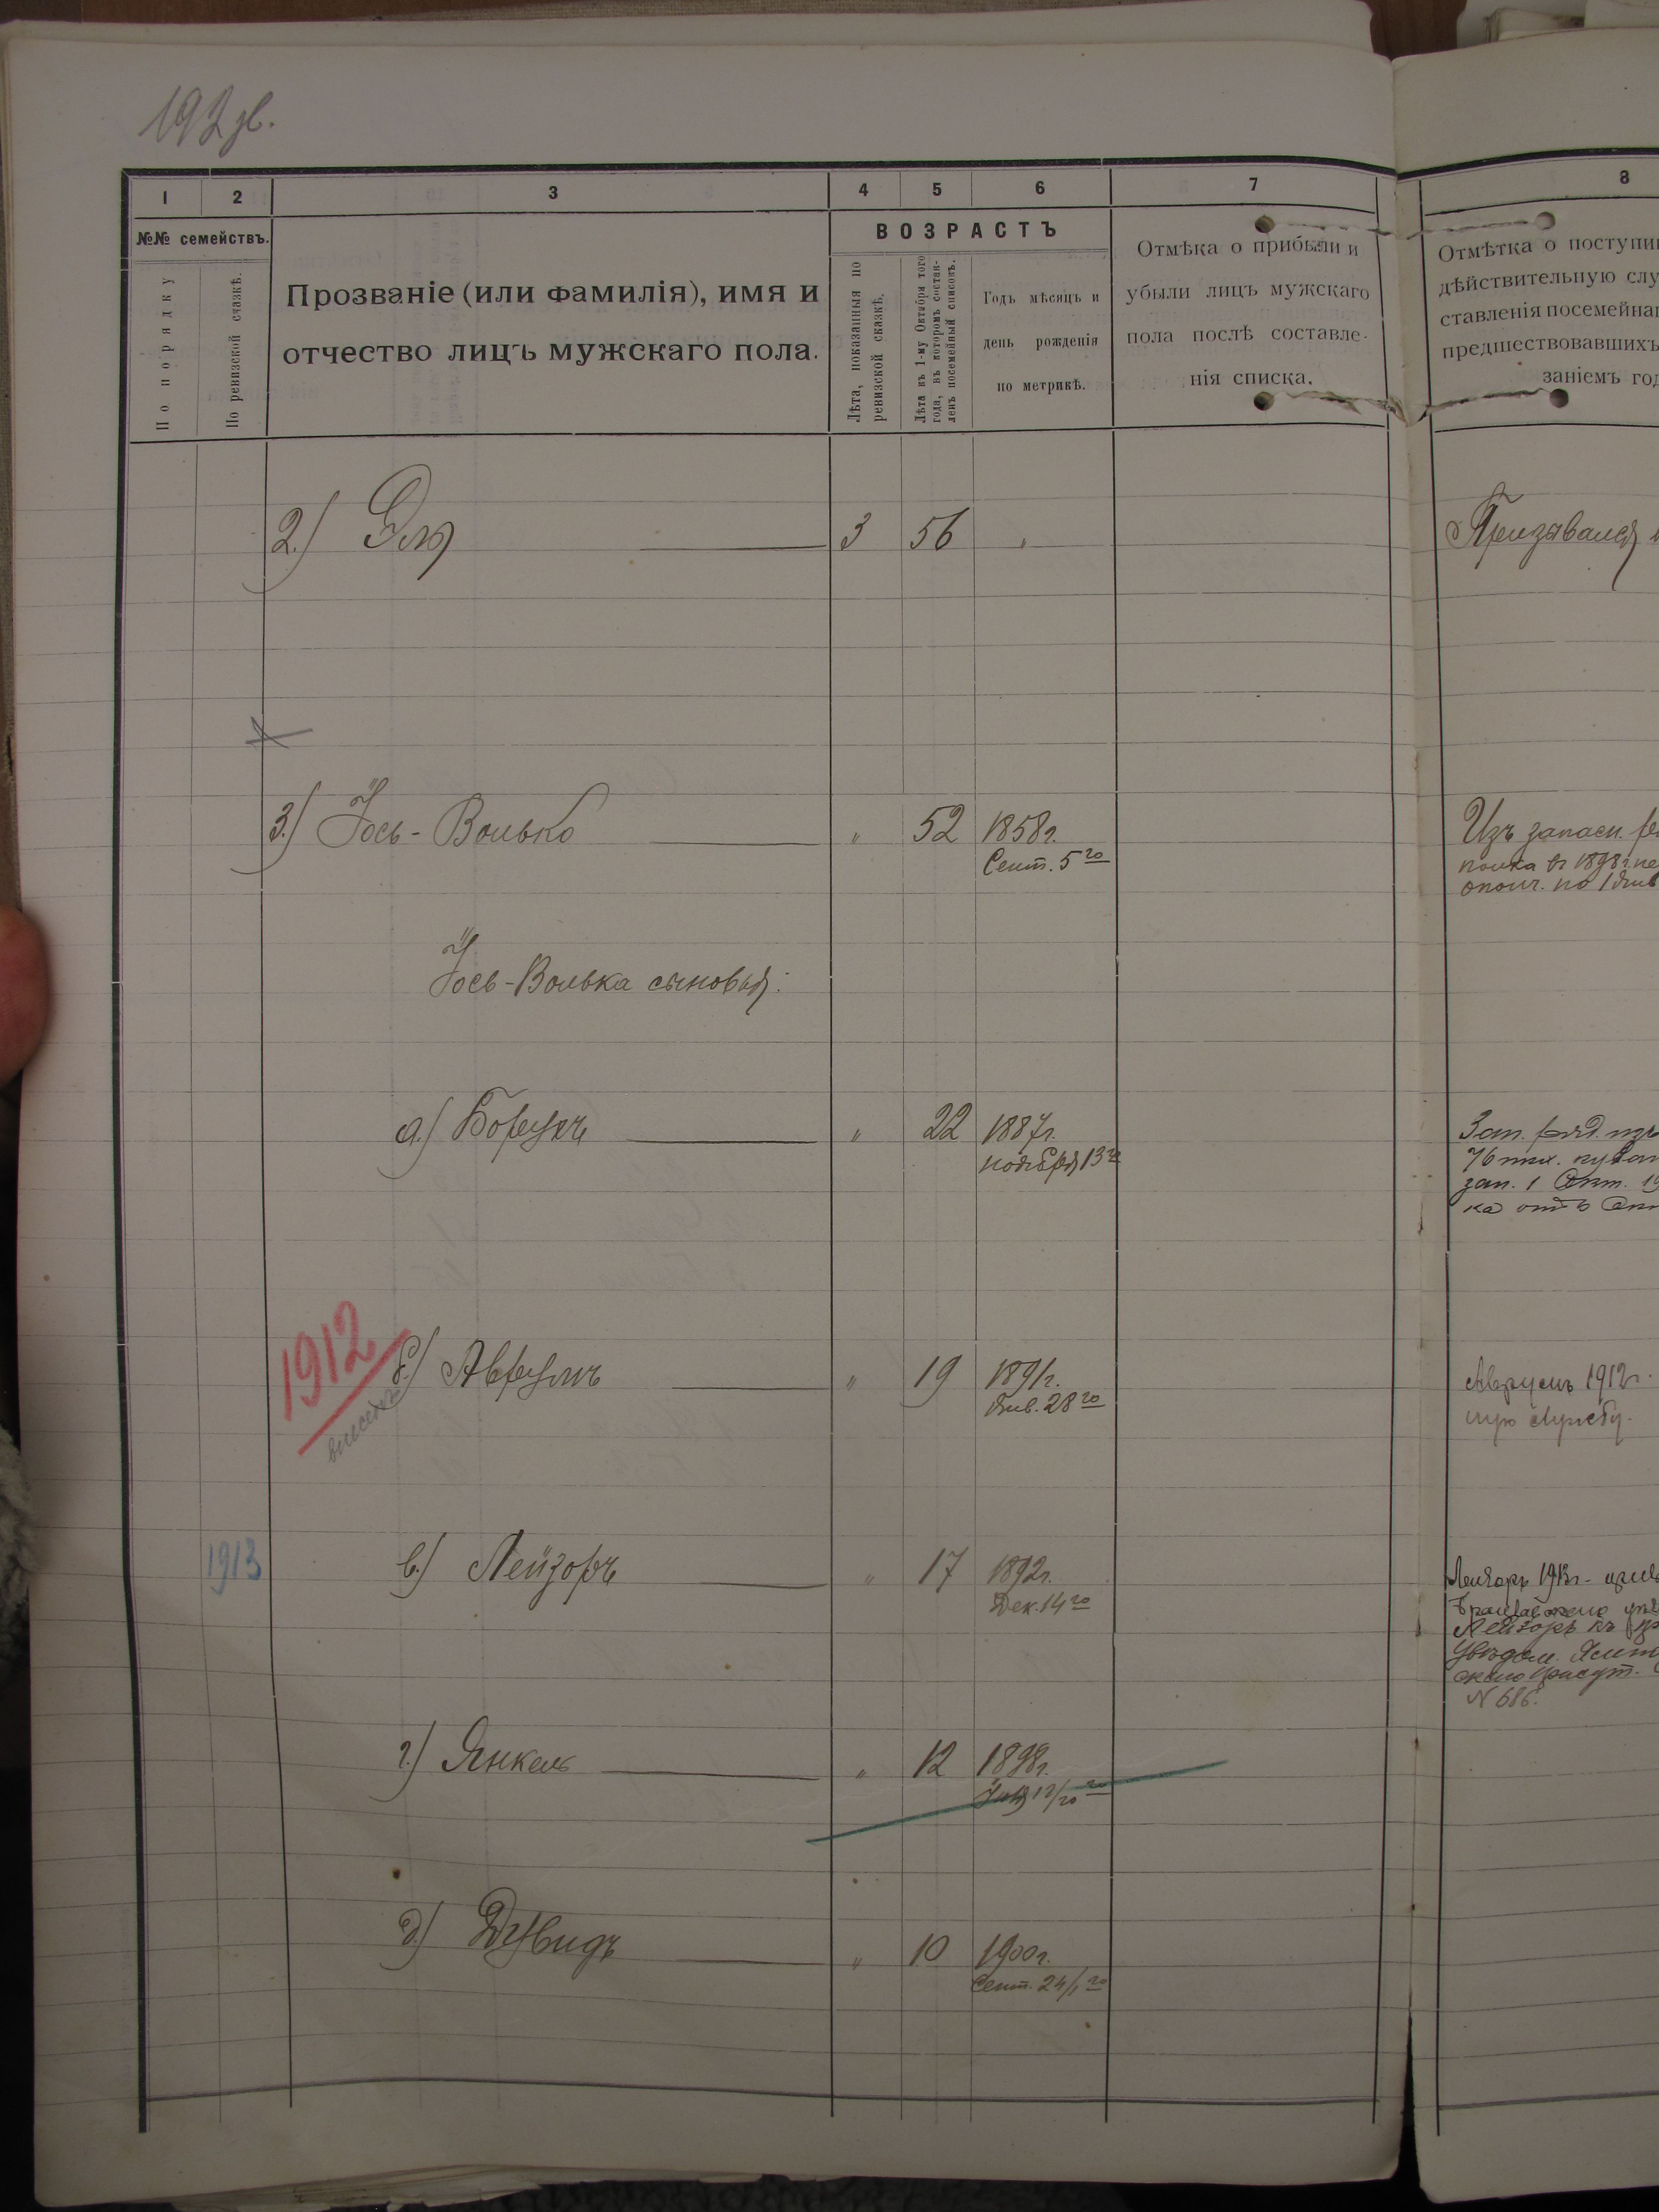 1
2
3
4
5
6
7
8
№№ семействъ.
По порядку
По ревизской сказкѣ.
Прозваніе (или фамилія), имя и
отчество лицъ мужскаго пола.
ВОЗРАСТЪ
Лѣта, показанныя по
ревизской сказкѣ.
Лѣта къ 1-му Октября того
года, въ которомъ состав-
ленъ посемейный списокъ.
Годъ мѣсяцъ и
день рожденія
по метрикѣ.
Отмѣка о прибыли и
убыли лицъ мужскаго
пола послѣ составле-
нія списка.
Отмѣтка о поступи
дѣйствительную слу
ставленія посемейна
предшествовавшихъ
заніемъ год
2.) Эля 3 56 "
Призывался
3.) Іось-Волько " 52 1858г.
Сент. 5го
Изъ запасн.
полка въ 1898г.
Іось-Волька сыновья:
а.) Борухъ " 22 1887г.
ноября 13го
Зап. ряд. изъ
76 пѣх.
зап. 1
1912
б.) Аврумъ " 19 1891г.
Янв. 28го
Аврумъ 1912г.
ную службу.
1913
в.) Лейзоръ " 17 1892г.
Дек. 14го
Лейзоръ 1913г.
Лейзоръ къ
N 686.
г.) Янкель " 12 1898г.
д.) Дувидъ " 10 1900г.
Сент. 24/1го